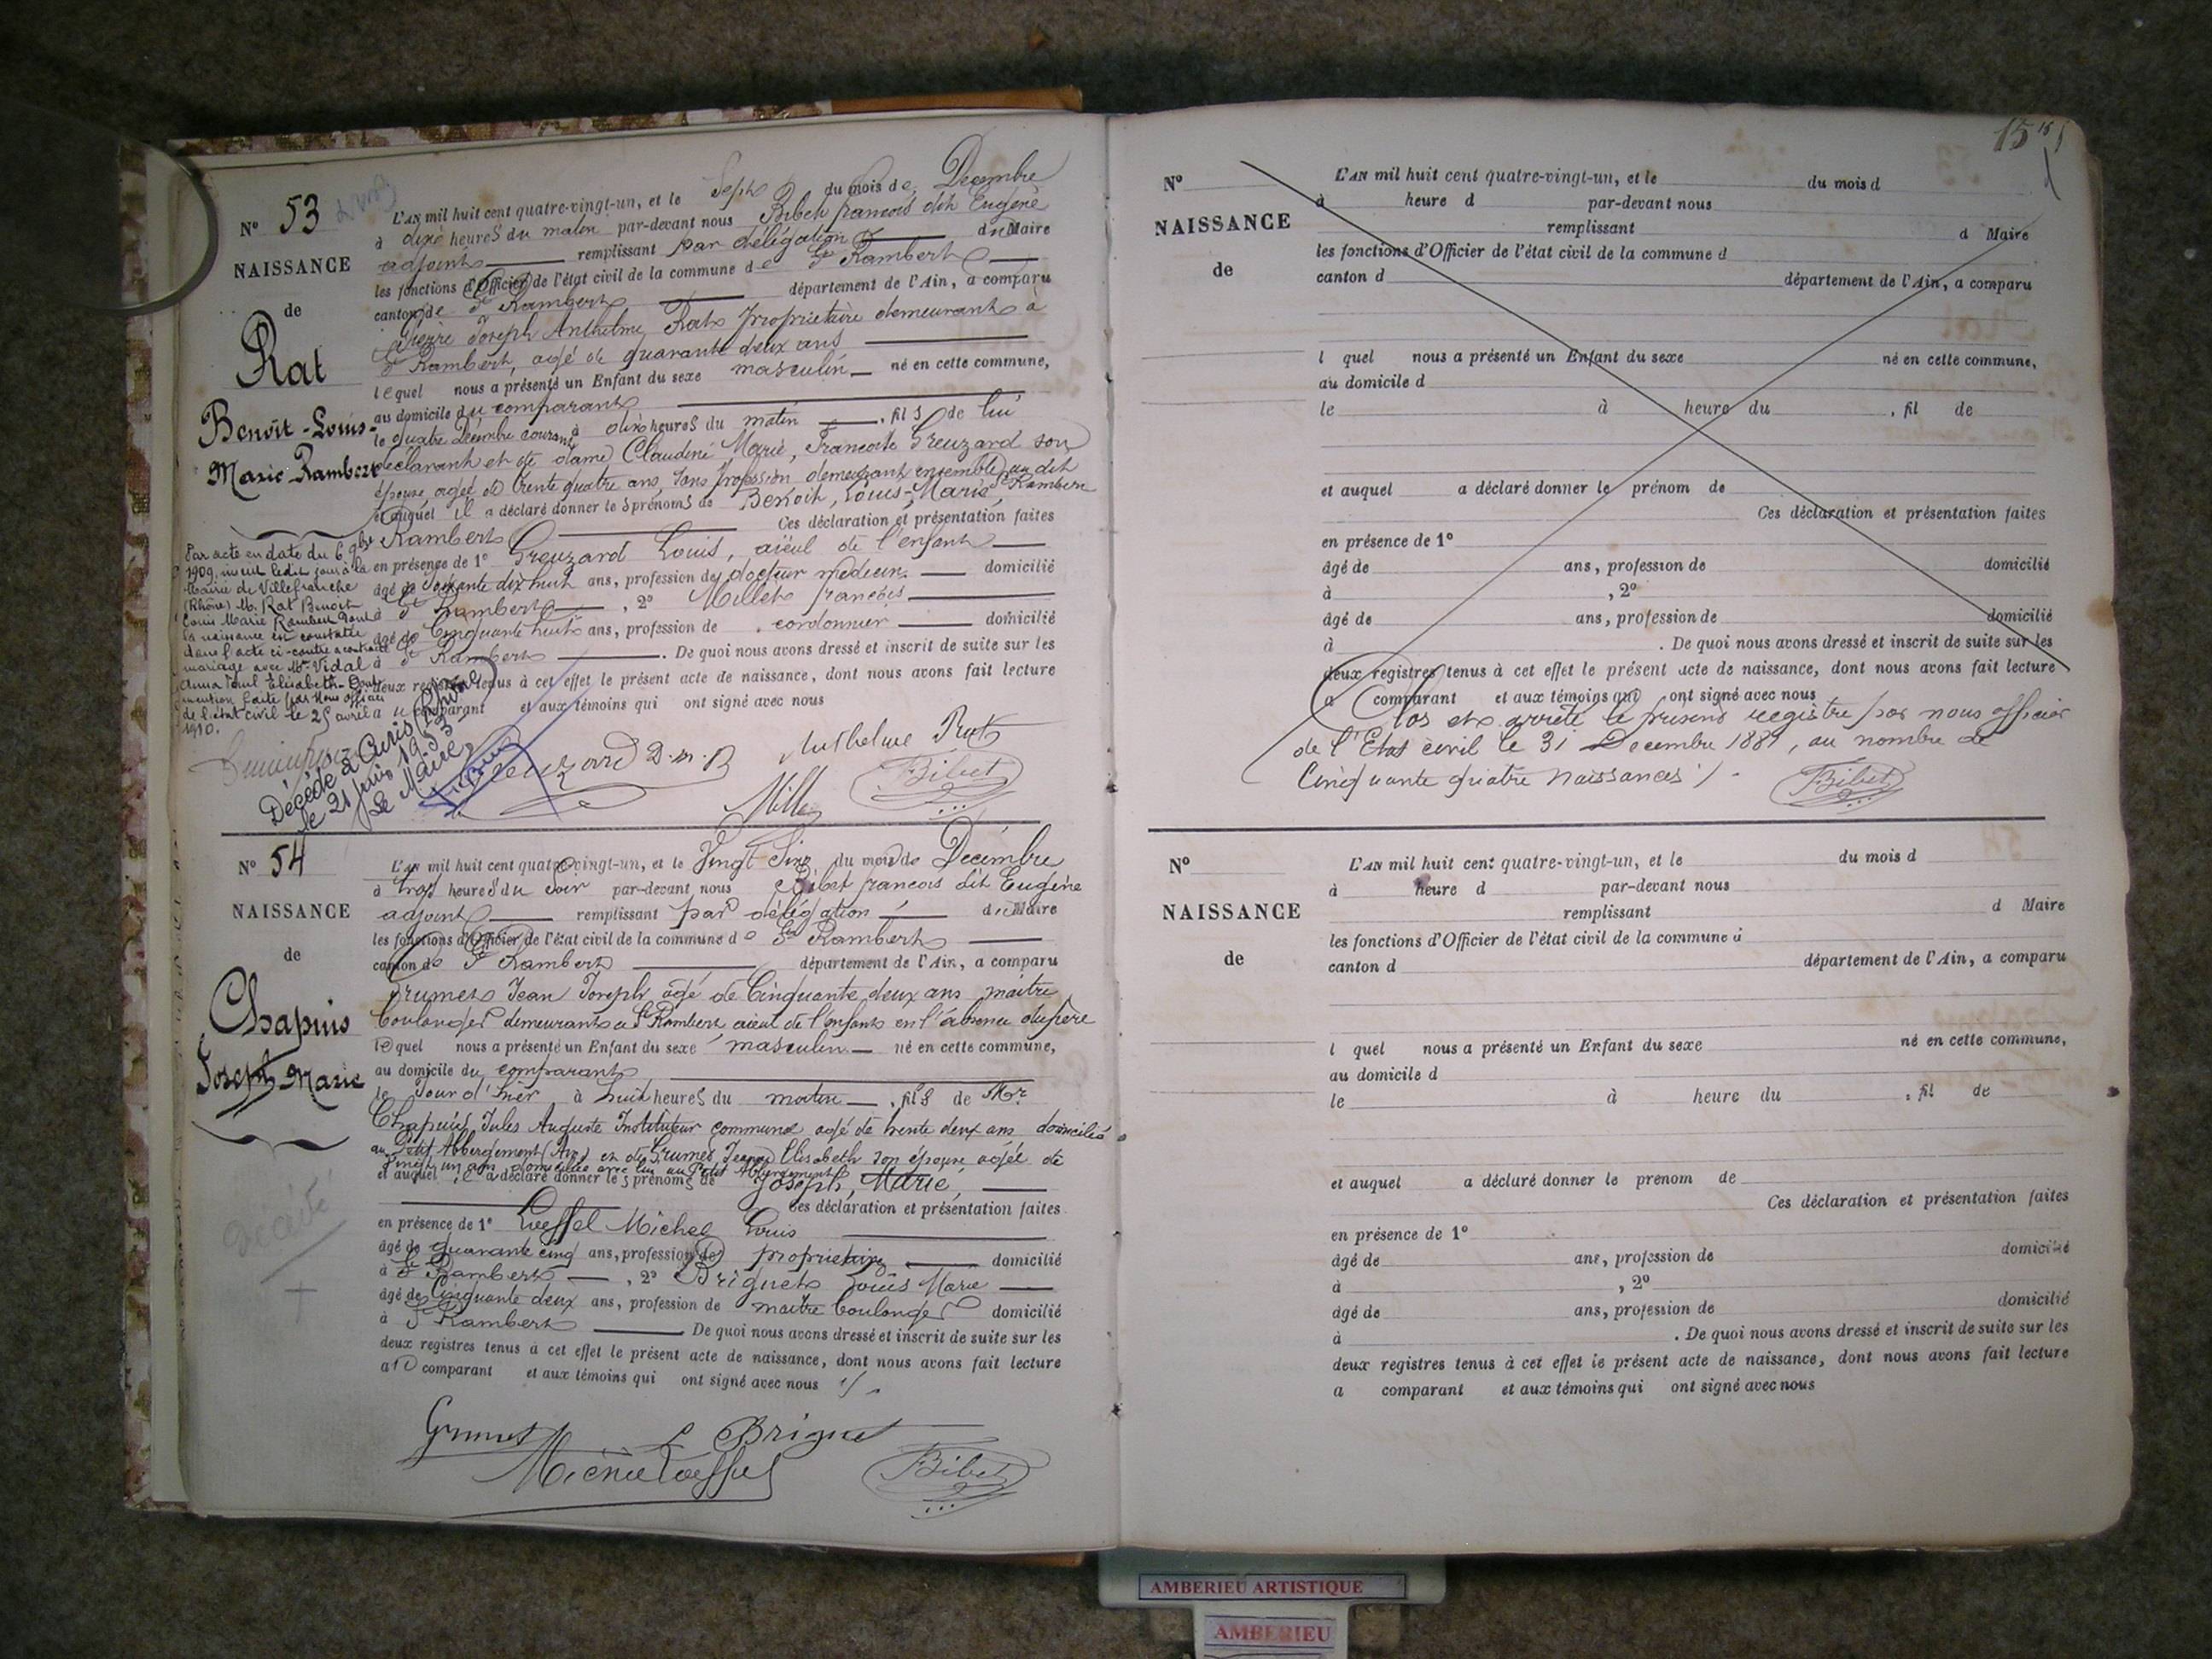 N° 53
NAISSANCE
de
Rat
Benoît-Louis-
Marie Rambert
L'AN mil huit cent quatre-vingt-un, et le Sept du mois de Décembre
à dixe heures du matin par-devant nous Bibet françois dit Eugène
adjoint remplissant par délégation du Maire
les fonctions d'Officier de l'état civil de la commune de St Rambert
canton de St Rambert département de l'Ain, a comparu
Pierre Joseph Anthelme Rat propriétaire demeurant à
St Rambert, agé de quarante deux ans
lequel nous a présenté un Enfant du sexe masculin né en cette commune,
au domicile du comparant
le quatre Décembre courant à dix heures du matin , fils de lui
déclarant et de dame Claudine Marie, Françoise Greuzard son
épouse agée de trente quatre ans, sans profession demeurant ensemble au dit St Rambert
et auquel il a déclaré donner le s prénoms de Benoît, Louis, Marie,
Rambert Ces déclaration et présentation faites
en présence de 1° Greuzard Louis, aïeul de l'enfant
âgé de Soixante dix huit ans, profession de docteur médecin domicilié
à St Rambert , 2° Millet françois
âgé de Cinquante huit ans, profession de cordonnier domicilié
à St Rambert . De quoi nous avons dressé et inscrit de suite sur les
deux registres tenus à cet effet le présent acte de naissance, dont nous avons fait lecture
au comparant et aux témoins qui ont signé avec nous
Par acte en date du 6 9bre
1909, inscrit ledit jour à la
Mairie de Villefranche
(Rhône) M. Rat Benoit
Louis Marie Rambert dont
la naissance est constatée
dans l'acte ci-contre a contracté
mariage avec Mlle Vidal
Anna Elisabeth - Dont
mention faite par Nous officier
de l'état civil le 25 avril
1910.
Décédé à Curis (Rhône)
le 21 juin 1953
Le Maire,
Greuzard D.m.P
Anthelme Rat
Millet
Bibet
N° 54
NAISSANCE
de
Chapuis
Joseph Marie
L'AN mil huit cent quatre-vingt-un, et le Vingt Six du mois de Décembre
à trois heures du soir par-devant nous Bibet francois dit Eugène
adjoint remplissant par délégation du Maire
les fonctions d'Officier de l'état civil de la commune de St Rambert
canton de St Rambert département de l'Ain, a comparu
Grumet Jean Joseph agé de Cinquante deux ans maitre
boulanger demeurant à St Rambert aïeul de l'enfant en l'absence du père
lequel nous a présenté un Enfant du sexe masculin né en cette commune,
au domicile du comparant
le Jour d'hier à huit heures du matin , fils de Mr
Chapuis Jules Auguste Instituteur communal agé de trente deux ans domicilié
au Petit Abbergement (Ain) et de Grumet Jeanne Elisabeth son épouse agée de
Vingt un ans domiciliée avec lui au Petit Abbergement
et auquel il a déclaré donner le s prénoms de Joseph, Marie,
Ces déclaration et présentation faites
en présence de 1° Loeffel Michel Louis
âgé de quarante cinq ans, profession de propriétaire domicilié
à St Rambert , 2° Briguet Louis Marie
âgé de Cinquante deux ans, profession de maitre boulanger domicilié
à St Rambert De quoi nous avons dressé et inscrit de suite sur les
deux registres tenus à cet effet le présent acte de naissance, dont nous avons fait lecture
au comparant et aux témoins qui ont signé avec nous
décédé
Grumet L Briguet
Michel Loeffel Bibet
15
N°
NAISSANCE
de
L'AN mil huit cent quatre-vingt-un, et le du mois d
à heure d par-devant nous
remplissant d Maire
les fonctions d'Officier de l'état civil de la commune d
canton d département de l'Ain, a comparu
l quel nous a présenté un Enfant du sexe né en cette commune,
au domicile d
le à heure du , fil de
et auquel a déclaré donner le prénom de
Ces déclaration et présentation faites
en présence de 1°
âgé de ans, profession de domicilié
à , 2°
âgé de ans, profession de domicilié
à . De quoi nous avons dressé et inscrit de suite sur les
deux registres tenus à cet effet le présent acte de naissance, dont nous avons fait lecture
a comparant et aux témoins qui ont signé avec nous
Clos et arrêté le présent registre par nous officier
de l'Etat civil le 31 Decembre 1881, au nombre de
Cinquante quatre Naissances
Bibet
N°
NAISSANCE
de
L'AN mil huit cent quatre-vingt-un, et le du mois d
à heure d par-devant nous
remplissant d Maire
les fonctions d'Officier de l'état civil de la commune d
canton d département de l'Ain, a comparu
l quel nous a présenté un Enfant du sexe né en cette commune,
au domicile d
le à heure du , fil de
et auquel a déclaré donner le prénom de
Ces déclaration et présentation faites
en présence de 1°
âgé de ans, profession de domicilié
à , 2°
âgé de ans, profession de domicilié
à . De quoi nous avons dressé et inscrit de suite sur les
deux registres tenus à cet effet le présent acte de naissance, dont nous avons fait lecture
a comparant et aux témoins qui ont signé avec nous
AMBERIEU ARTISTIQUE
AMBERIEU